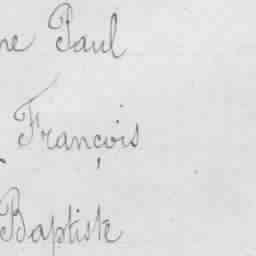 ne Paul
François
Baptiste